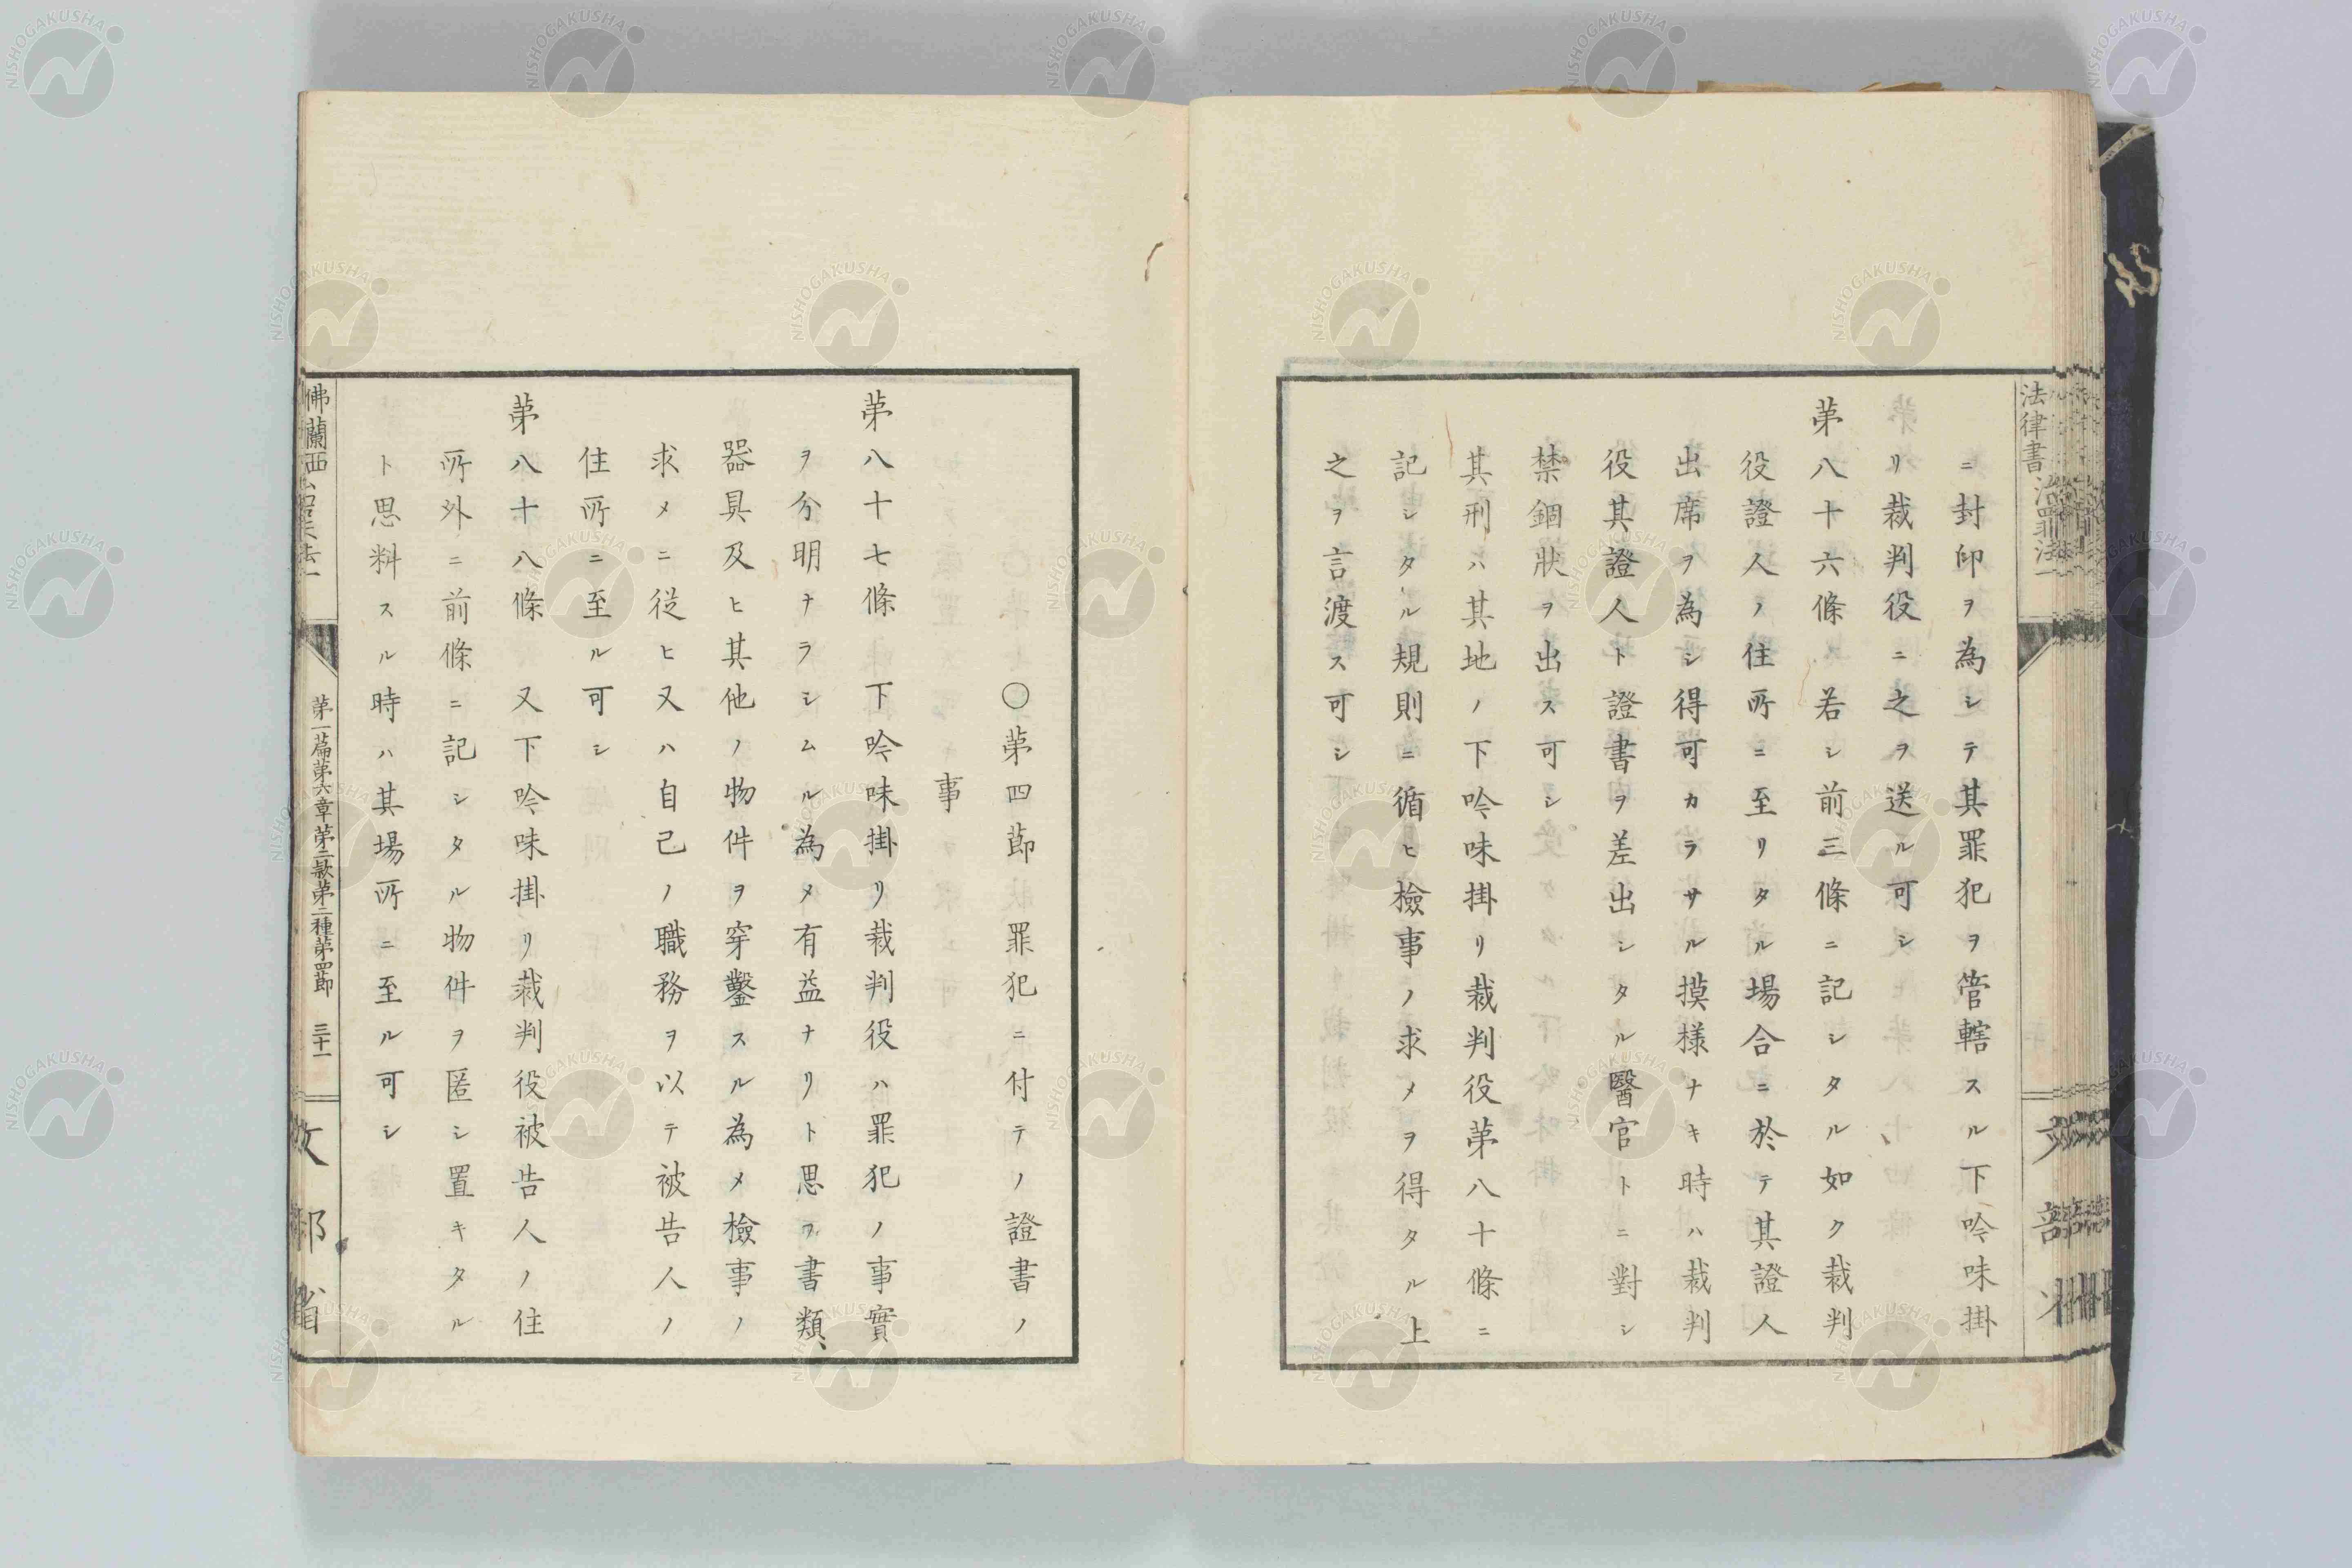 ニ封印ヲ為シテ其罪犯ヲ管轄スル下吟味掛
リ裁判役ニ之ヲ送ル可シ
第八十六條 若シ前三條ニ記シタル如ク裁判
役證人ノ住所ニ至リタル場合ニ於テ其證人
出席ヲ為シ得可カラサル摸様ナキ時ハ裁判
役其證人ト證書ヲ差出シタル醫官トニ對シ
禁錮狀ヲ出ス可シ
其刑ハ其地ノ下吟味掛リ裁判役第八十條ニ
記シタル規則ニ循ヒ檢事ノ求メヲ得タル上
之ヲ言渡ス可シ
〇第四節 罪犯ニ付テノ證書ノ
事
第八十七條 下吟味掛リ裁判役ハ罪犯ノ事實
ヲ分明ナラシムル為メ有益ナリト思フ書類、
器具及ヒ其他ノ物件ヲ穿鑿スル為メ檢事ノ
求メニ從ヒ又ハ自己ノ職務ヲ以テ被告人ノ
住所ニ至ル可シ
第八十八條 又下吟味掛リ裁判役被告人ノ住
所外ニ前條ニ記シタル物件ヲ匿シ置キタル
ト思料スル時ハ其場所ニ至ル可シ
法律書 治罪法一
佛蘭西
第一篇第六章第二款第二種第四節 三十一
文部省
NISHOGAKUSHA